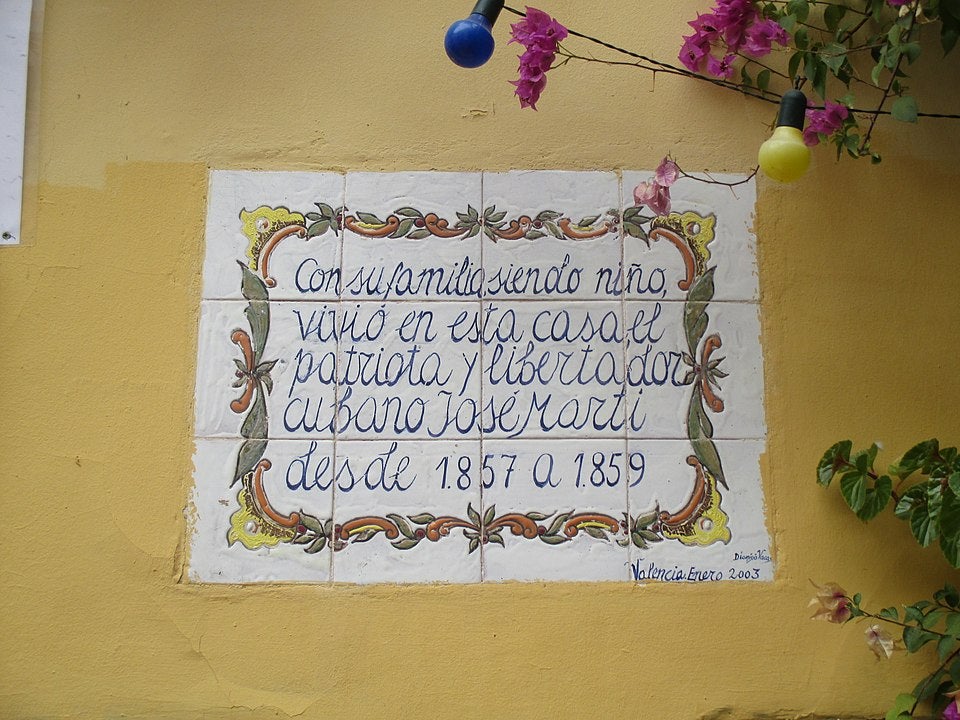 Con su familia siendo niño,
vivió en esta casa, el
patriota y libertador
cubano José Martí
desde 1.857 a 1.859
Valencia. Enero 2003